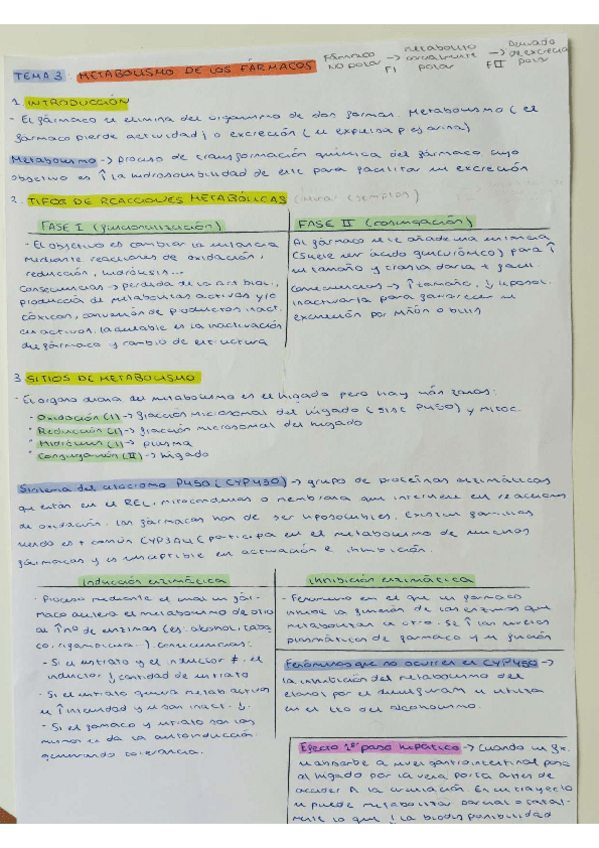 TEMA 3: METABOLISMO DE LOS FÁRMACOS
Fármaco no polar → FI metabolito parcialmente polar → FII polar
1. INTRODUCCIÓN
- El fármaco se elimina del organismo de dos formas. Metabolismo (el
fármaco pierde actividad) o excreción (se expulsa p ej orina)
Metabolismo → proceso de transformación química del fármaco cuyo
objetivo es ↑ la hidrosolubilidad de este para facilitar su excreción
2. TIPOS DE REACCIONES METABÓLICAS (mirar ejemplos)
FASE I (funcionalización)
· El objetivo es cambiar la sustancia
mediante reacciones de oxidación,
reducción, hidrólisis...
Consecuencias → pérdida de la act. biol.,
producción de metabolitos activos y/o
tóxicos, conversión de productos inact.
en activos. la es la inactivación
del fármaco y cambio de estructura
FASE II (conjugación)
Al fármaco se le añade una sustancia
(suele ser ácido glucurónico) para ↑
su tamaño y + fácil.
Consecuencias → ↑ tamaño, ↓ liposol.
inactivarla para favorecer su
excreción por riñón o bilis
3. SITIOS DE METABOLISMO
· El órgano diana del metabolismo es el hígado pero hay más zonas:
· Oxidación (I) → fracción microsomal del hígado (sist P450) y mitoc.
· Reducción (I) → fracción microsomal del hígado
· Hidrólisis (I) → plasma
· Conjugación (II) → hígado
Sistema del citocromo P450 (CYP450) → grupo de proteínas enzimáticas
que están en el REL, mitocondrias o membrana que interviene en reacciones
de oxidación. Los fármacos han de ser liposolubles. Existen familias
siendo es + común CYP3A4 (participa en el metabolismo de muchos
fármacos y es susceptible en activación e inhibición.
Inducción enzimática
· Proceso mediante el cual un fár-
maco acelera el metabolismo de otro
al ↑ nº de enzimas (ej: alcohol, taba
co, rifampicina...) Consecuencias:
- Si el sustrato y el inductor ≠, el
inductor ↓ cantidad de sustrato
- Si el sustrato genera metab activos
se ↑ intensidad y si son inact. ↓.
- Si el fármaco y sustrato son los
mismos se da la autoinducción
generando tolerancia.
Inhibición enzimática
- Fenómeno en el que un fármaco
inhibe la función de las enzimas que
metabolizan a otro. Se ↑ los niveles
plasmáticos de fármaco y su función
Fenómenos que no ocurren en CYP450 →
la inhibición del metabolismo del
etanol por el disulfiram se utiliza
en el tto del alcoholismo.
Efecto 1er paso hepático → Cuando un fx.
se absorbe a nivel gastrointestinal pasa
al hígado por la vena porta antes de
acceder a la circulación. En su trayecto
se puede metabolizar parcial o total-
mente lo que ↓ la biodisponibilidad